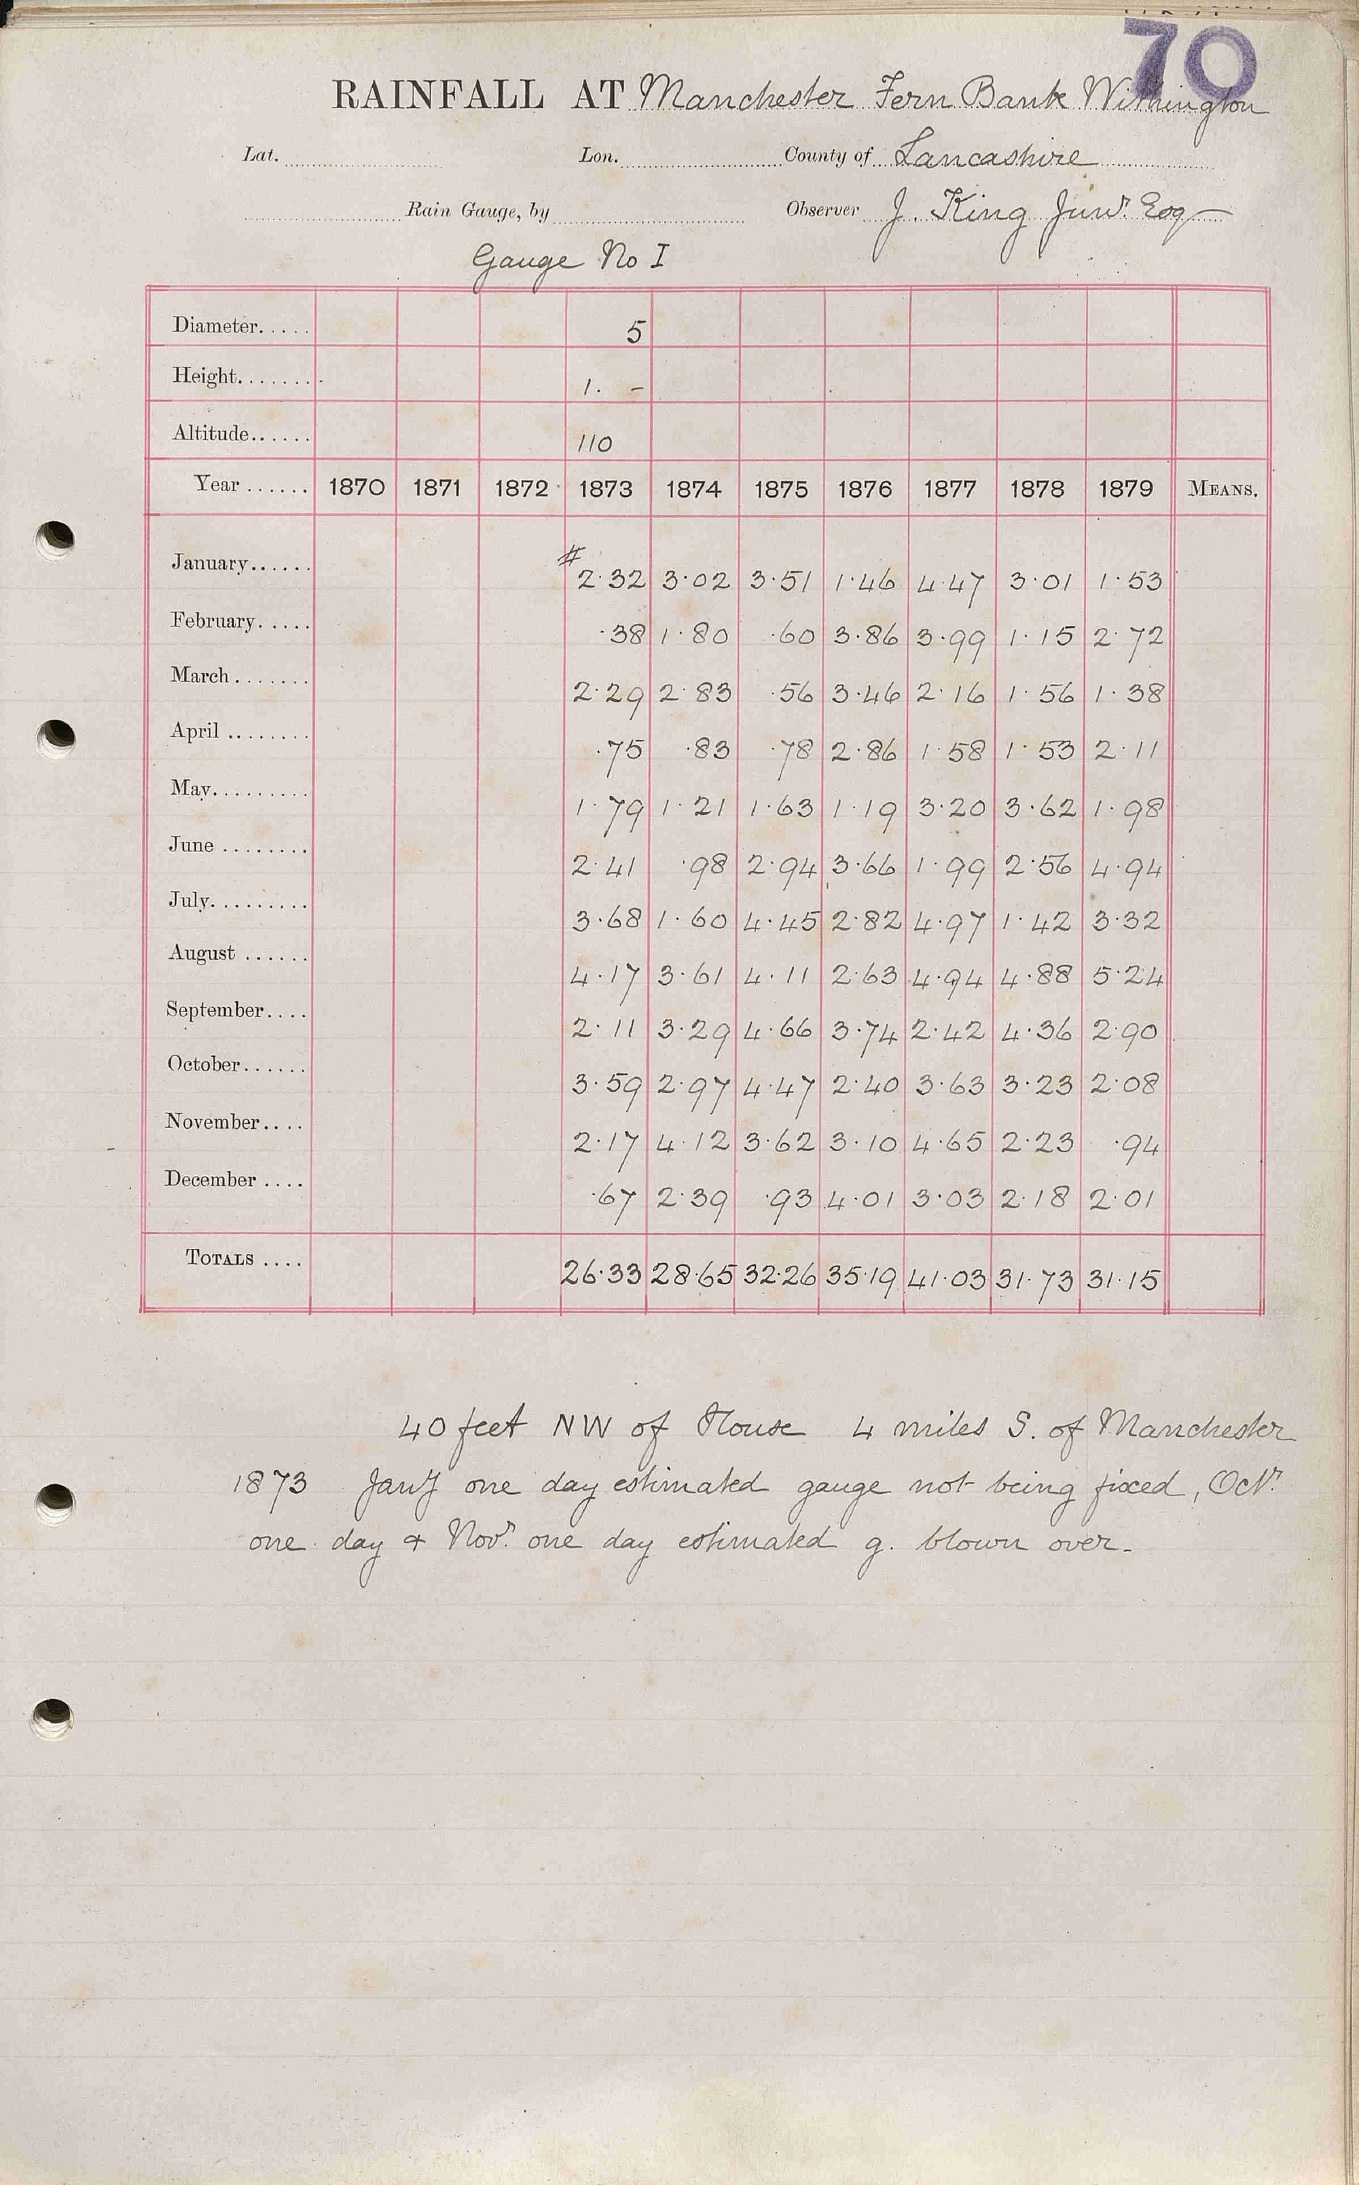 70
RAINFALL AT Manchester Fern Bank Withington
Lat. Lon. County of Lancashire
Rain Gauge, by Observer J. King Junr. Esq
Gauge No I
Diameter..... 5
Height........ 1. -
Altitude...... 110
Year ...... 1870 1871 1872 1873 1874 1875 1876 1877 1878 1879 MEANS.
January...... # 2.32 3.02 3.51 1.46 4.47 3.01 1.53
February..... .38 1.80 .60 3.86 3.99 1.15 2.72
March ....... 2.29 2.83 .56 3.46 2.16 1.56 1.38
April ........ .75 .83 .78 2.86 1.58 1.53 2.11
May......... 1.79 1.21 1.63 1.19 3.20 3.62 1.98
June ........ 2.41 .98 2.94 3.66 1.99 2.56 4.94
July......... 3.68 1.60 4.45 2.82 4.97 1.42 3.32
August ...... 4.17 3.61 4.11 2.63 4.94 4.88 5.24
September.... 2.11 3.29 4.66 3.74 2.42 4.36 2.90
October...... 3.59 2.97 4.47 2.40 3.63 3.23 2.08
November.... 2.17 4.12 3.62 3.10 4.65 2.23 .94
December .... .67 2.39 .93 4.01 3.03 2.18 2.01
TOTALS .... 26.33 28.65 32.26 35.19 41.03 31.73 31.15
40 feet NW of House 4 miles S. of Manchester
1873 Jany one day estimated gauge not being fixed, Octr.
one day & Novr. one day estimated g. blown over.